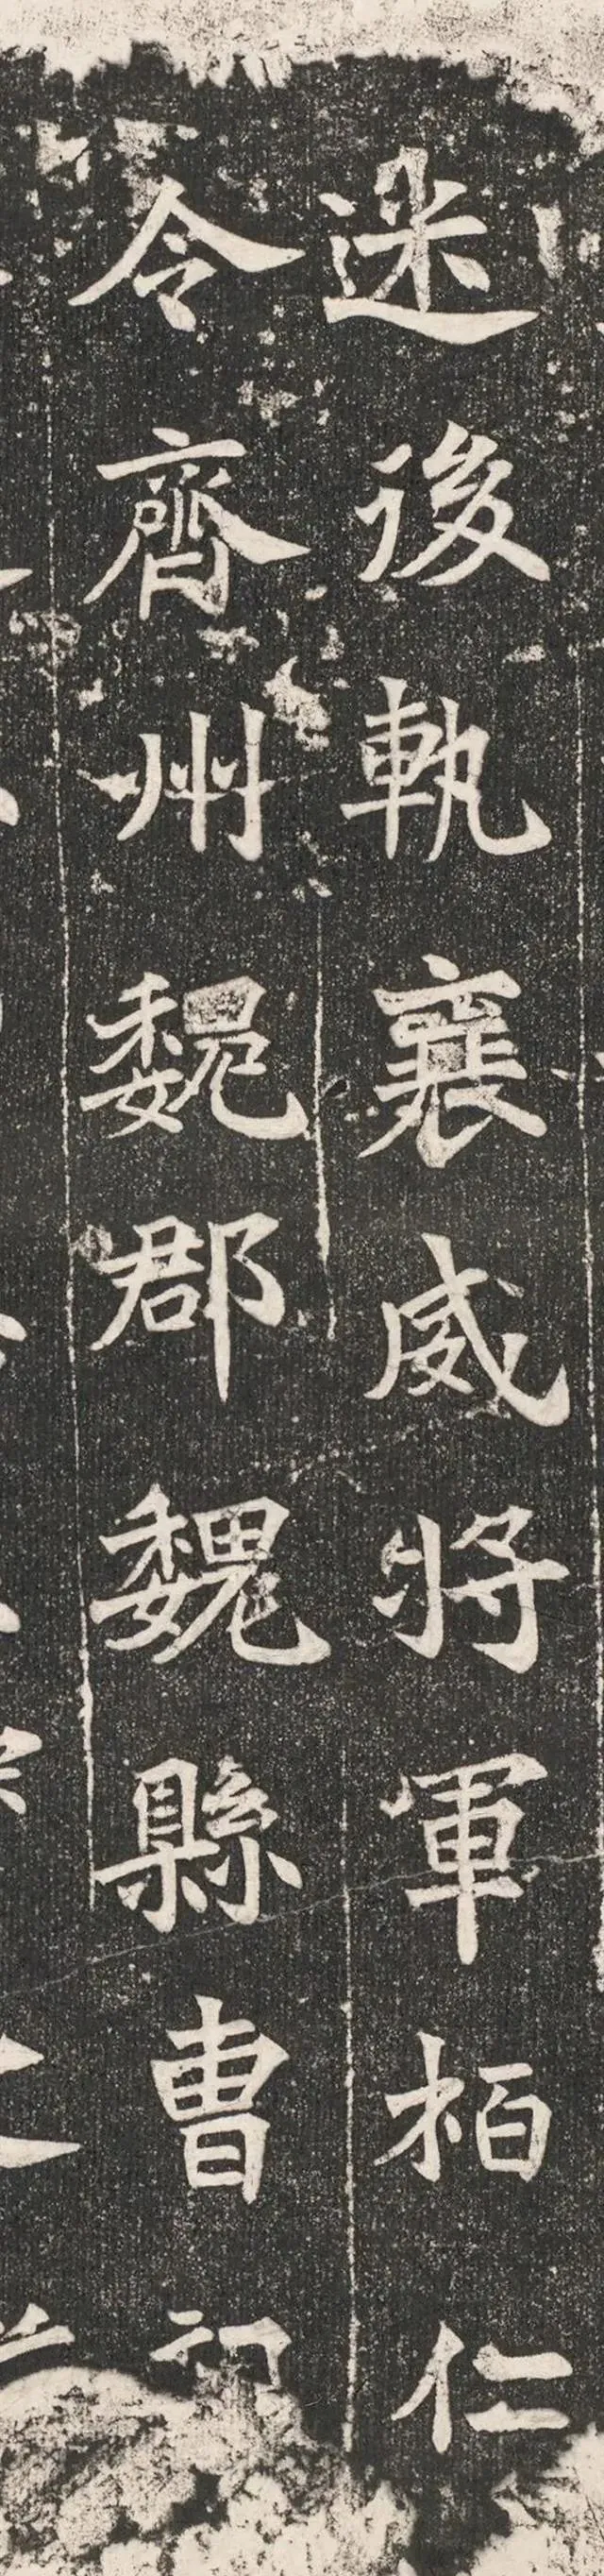 迷後軌襄威將軍柏仁
令齊州魏郡魏縣曹